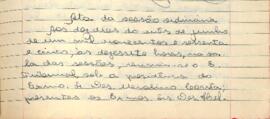 Ata da sessão ordinária
Aos dez dias do mês de junho
de um mil novecentos e sessenta
e cinco, às dezessete horas, na sa-
la das sessões, reuniu-se o E.
Tribunal sob a presidência do
Exmo. Sr. Des.
presentes os Exmos. Srs. Des.